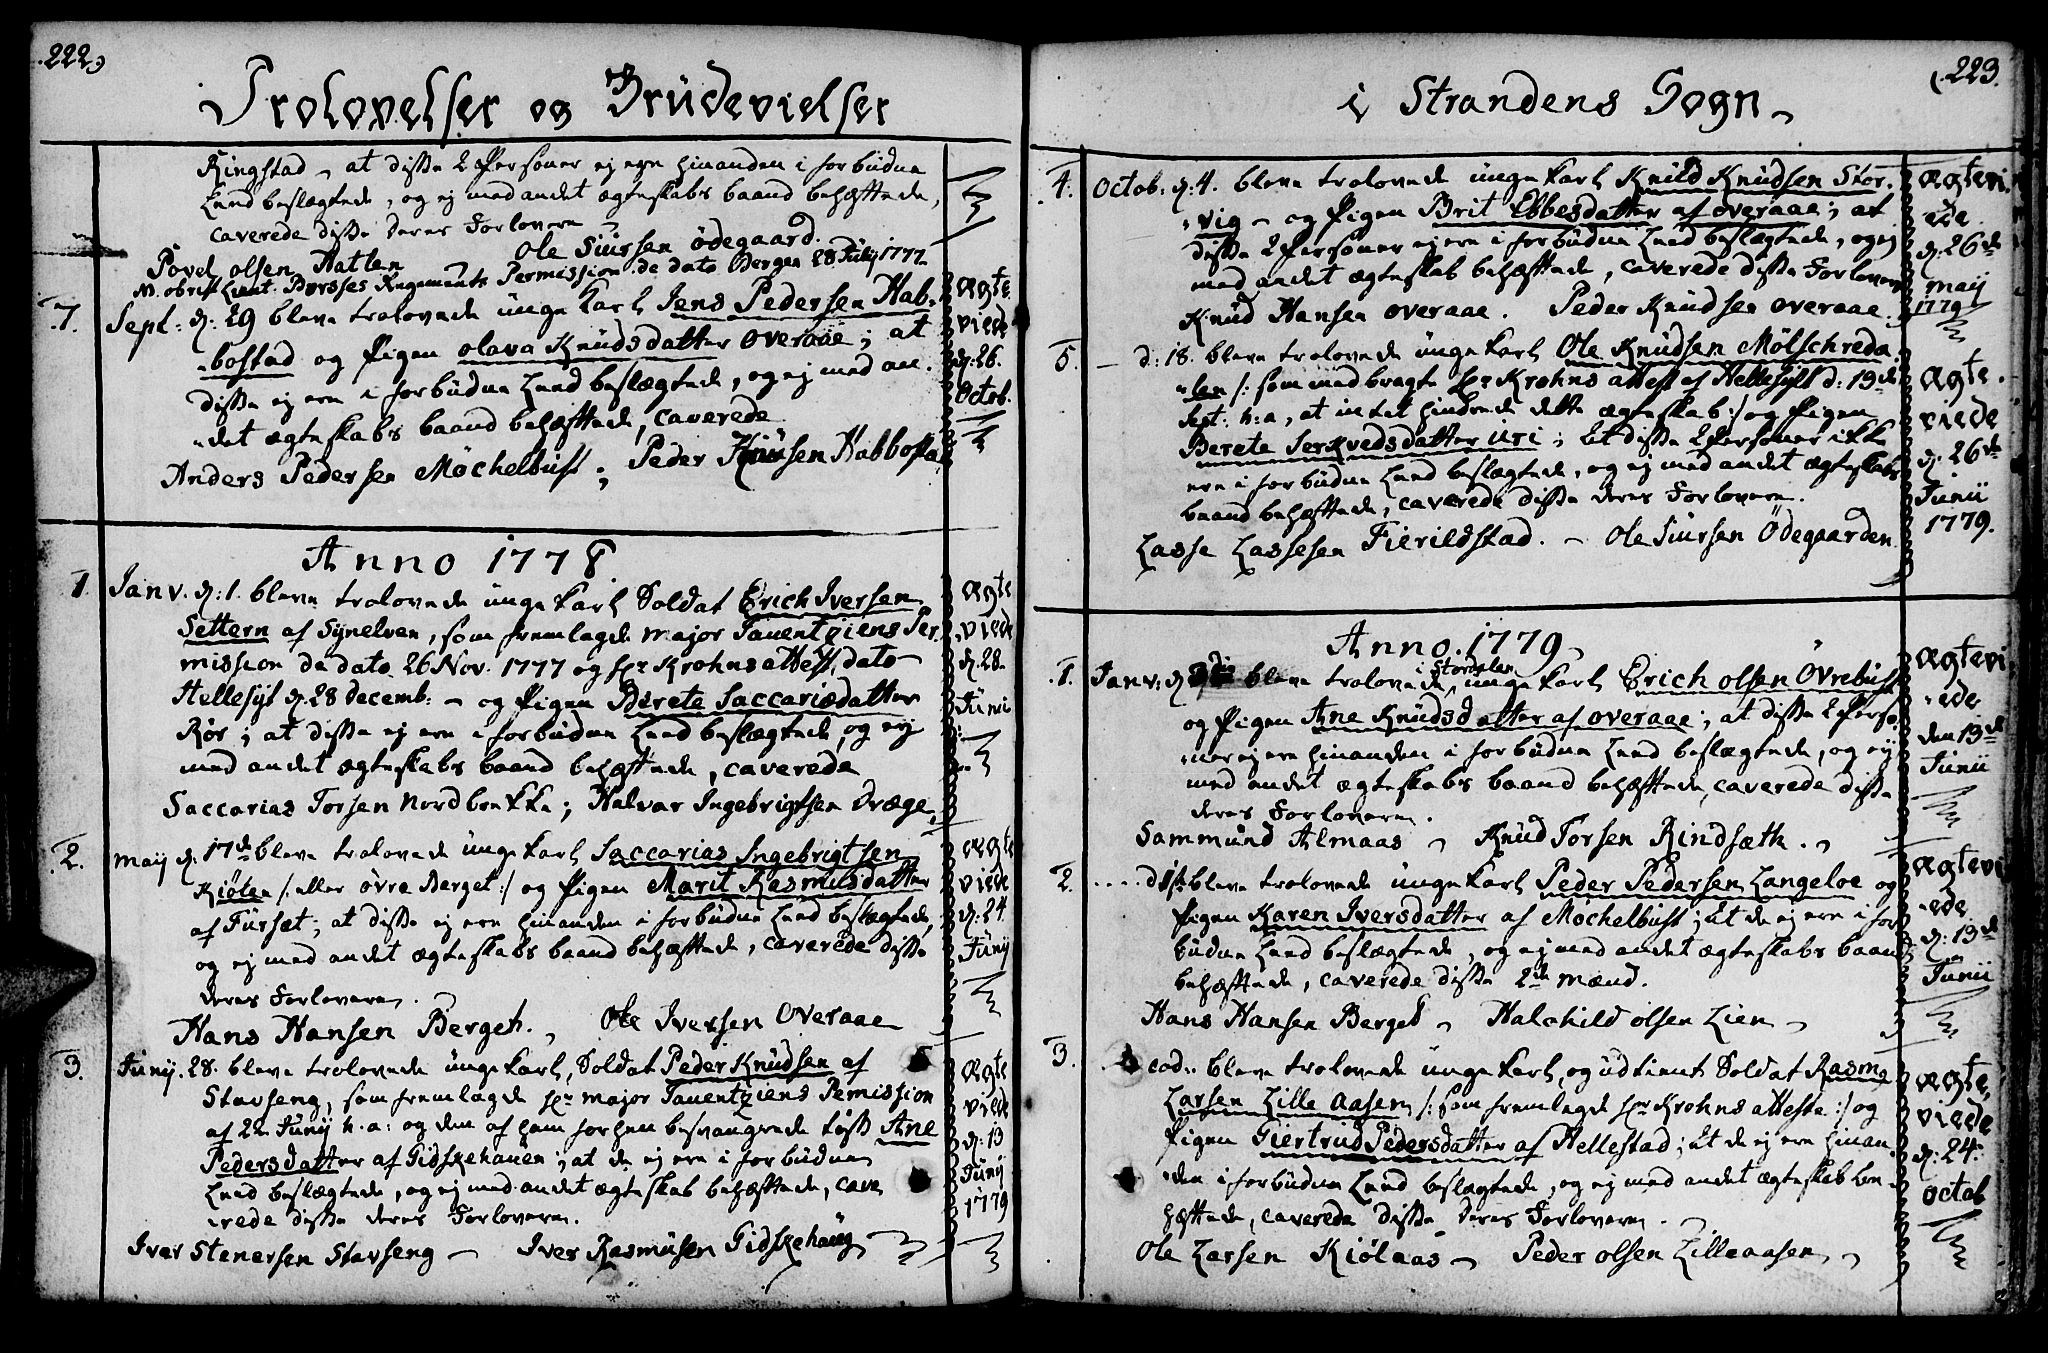 222
Trolovelser og Brüdevielser
Ringstad, at disse 2 Personer ej ere hinanden i forbüdne
Leed beslægtede, og ej med andet ægteskabs baand behæftede,
caverede disse deres Forlovere
Povel olsen Hatten Ole Siursen ödegaard.
NB. obrist Lieut. Borsses Regements Permission de dato Bergen 28 Tuly 1777
7. Sept: d: 29 bleve trolovede unge Karl Jens Pedersen Hab-
bostad og Pigen olava Knüdsdatter overaae; at
disse ej ere i forbüdne Leed beslægtede, og ej med an-
det ægteskabs baand behæftede, caverede
Anders Pedersen Möchelbust; Peder Habbosta
ægte
viede
d: 26.
Octob.
Anno 1778
1. Janv. d: 1. bleve trolovede unge Karl Soldat Erich Iversen
Settern af Synelven, som fremlagde major Tauentziens Per-
mission de dato 26 Nov. 1777 og Hr Krohns attest, dato
Hellesyt d. 28 decemb: og Pigen Berete Saccariædatter
Rör; at disse ej ere i forbüdne Leed beslægtede, og ej
med andet ægteskabs baand behæftede, caverede
Saccarias Torsen Nordbrekke; Halvar Ingebrigtsen Dræge
ægte
viede
d. 28
Juni
2. maij d. 17de bleve trolovede unge Karl Saccarias Ingebrigtsen
Kiölen /: eller övre Berget :/ og Pigen Marit Rasmusdatter
af Fürset; at disse ej ere hinanden i forbüdne Leed beslægtede,
og ej med andet ægteskabs baand behæftede, caverede disse
deres Forlovere.
Hans Hansen Berget. Ole Iversen Overaae
ægte
viede
d. 24
Jünij
3. Junij. 28. bleve trolovede unge Karl, Soldat Peder Knüdsen af
Stavseng, som fremlagde Hr major Tauentziens Pemission
af 22 Junij h. a: og den af ham forhen besvangrede tøs Ane
Pedersdatter af Gidskehauen; at de ej ere i forbüdne
Leed beslægtede, og ej med andet ægteskab behæftede, cave
rede disse deres Forlovere.
Iver Stenersen Stavseng Iver Rasmüsen Gidskehaüg
ægte
viede
d: 13
Jünij
1779
223.
i Strandens Sogn
4. Octob. d: 4. bleve trolovede unge Karl Knüd Knüdsen Stor-
vig og Pigen Brit Ebbesdatter af overaae; at
disse 2 Personer ej ere i forbüdne Leed beslægtede, og ej
med andet ægteskab behæftede, caverede disse Forlovere
Knüd Hansen overaae. Peder Knüdsen overaae.
ægtevi
ede
d. 26de
maij
1779
5. d: 18. bleve trolovede unge Karl Ole Knüdsen Mölschreda
len /: som medbragte Hr Krohns attest af Hellesylt d: 19de
Sept: h: a, at intet hindrede dette ægteskab :/ og Pigen
Berete Serkvedsdatter Uri; at disse 2 Personer ikke
ere i forbüdne Leed beslægtede, og ej med andet ægteskabs
baand behæftede, caverede disse deres Forlovere.
Lasse Lassesen Fierildstad. Ole Siursen Ödegaarden
ægte
viede
d. 26de
Junii
1779.
Anno. 1779
1. Janv: d. bleve trolovede i Stordalen unge Karl Erich olsen Övrebust
og Pigen Ane Knüdsdatter af overaae; at disse 2 Perso-
ner ej ere hinanden i forbüdne Leed beslægtede, og ej
med andet ægteskabs baand behæftede, caverede disse
deres Forlovere.
Sammünd Almaas Knüd Torsen Rindsæth.
ægtevi
ede
den 13de
Junii
2. d 1ste bleve trolovede unge Karl Peder Pedersen Langeloe og
Pigen Karen Iversdatter af Möchelbust; at de ej ere i for
büdne Leed beslægtede, og ej med andet ægteskabs baand
behæftede, caverede disse 2de mænd.
Hans Hansen Berget Halchild olsen Lien
ægtevi
ede
d: 13de
Jünii
3. eod: bleve trolovede unge Karl, og udtient Soldat Rasmo
Larsen Lille Aasen /: som fremlagde Hr Krohns atteste :/ og
Pigen Giertrud Pedersdatter af Hellestad; at de ej ere hinan-
den i forbüdne Leed beslægtede, og ej med andet ægteskab be-
hæftede, caverede disse deres Forlovere.
Ole Larsen Kiölaas Peder olsen Lilleaasen
ægte
viede
d: 24.
octob